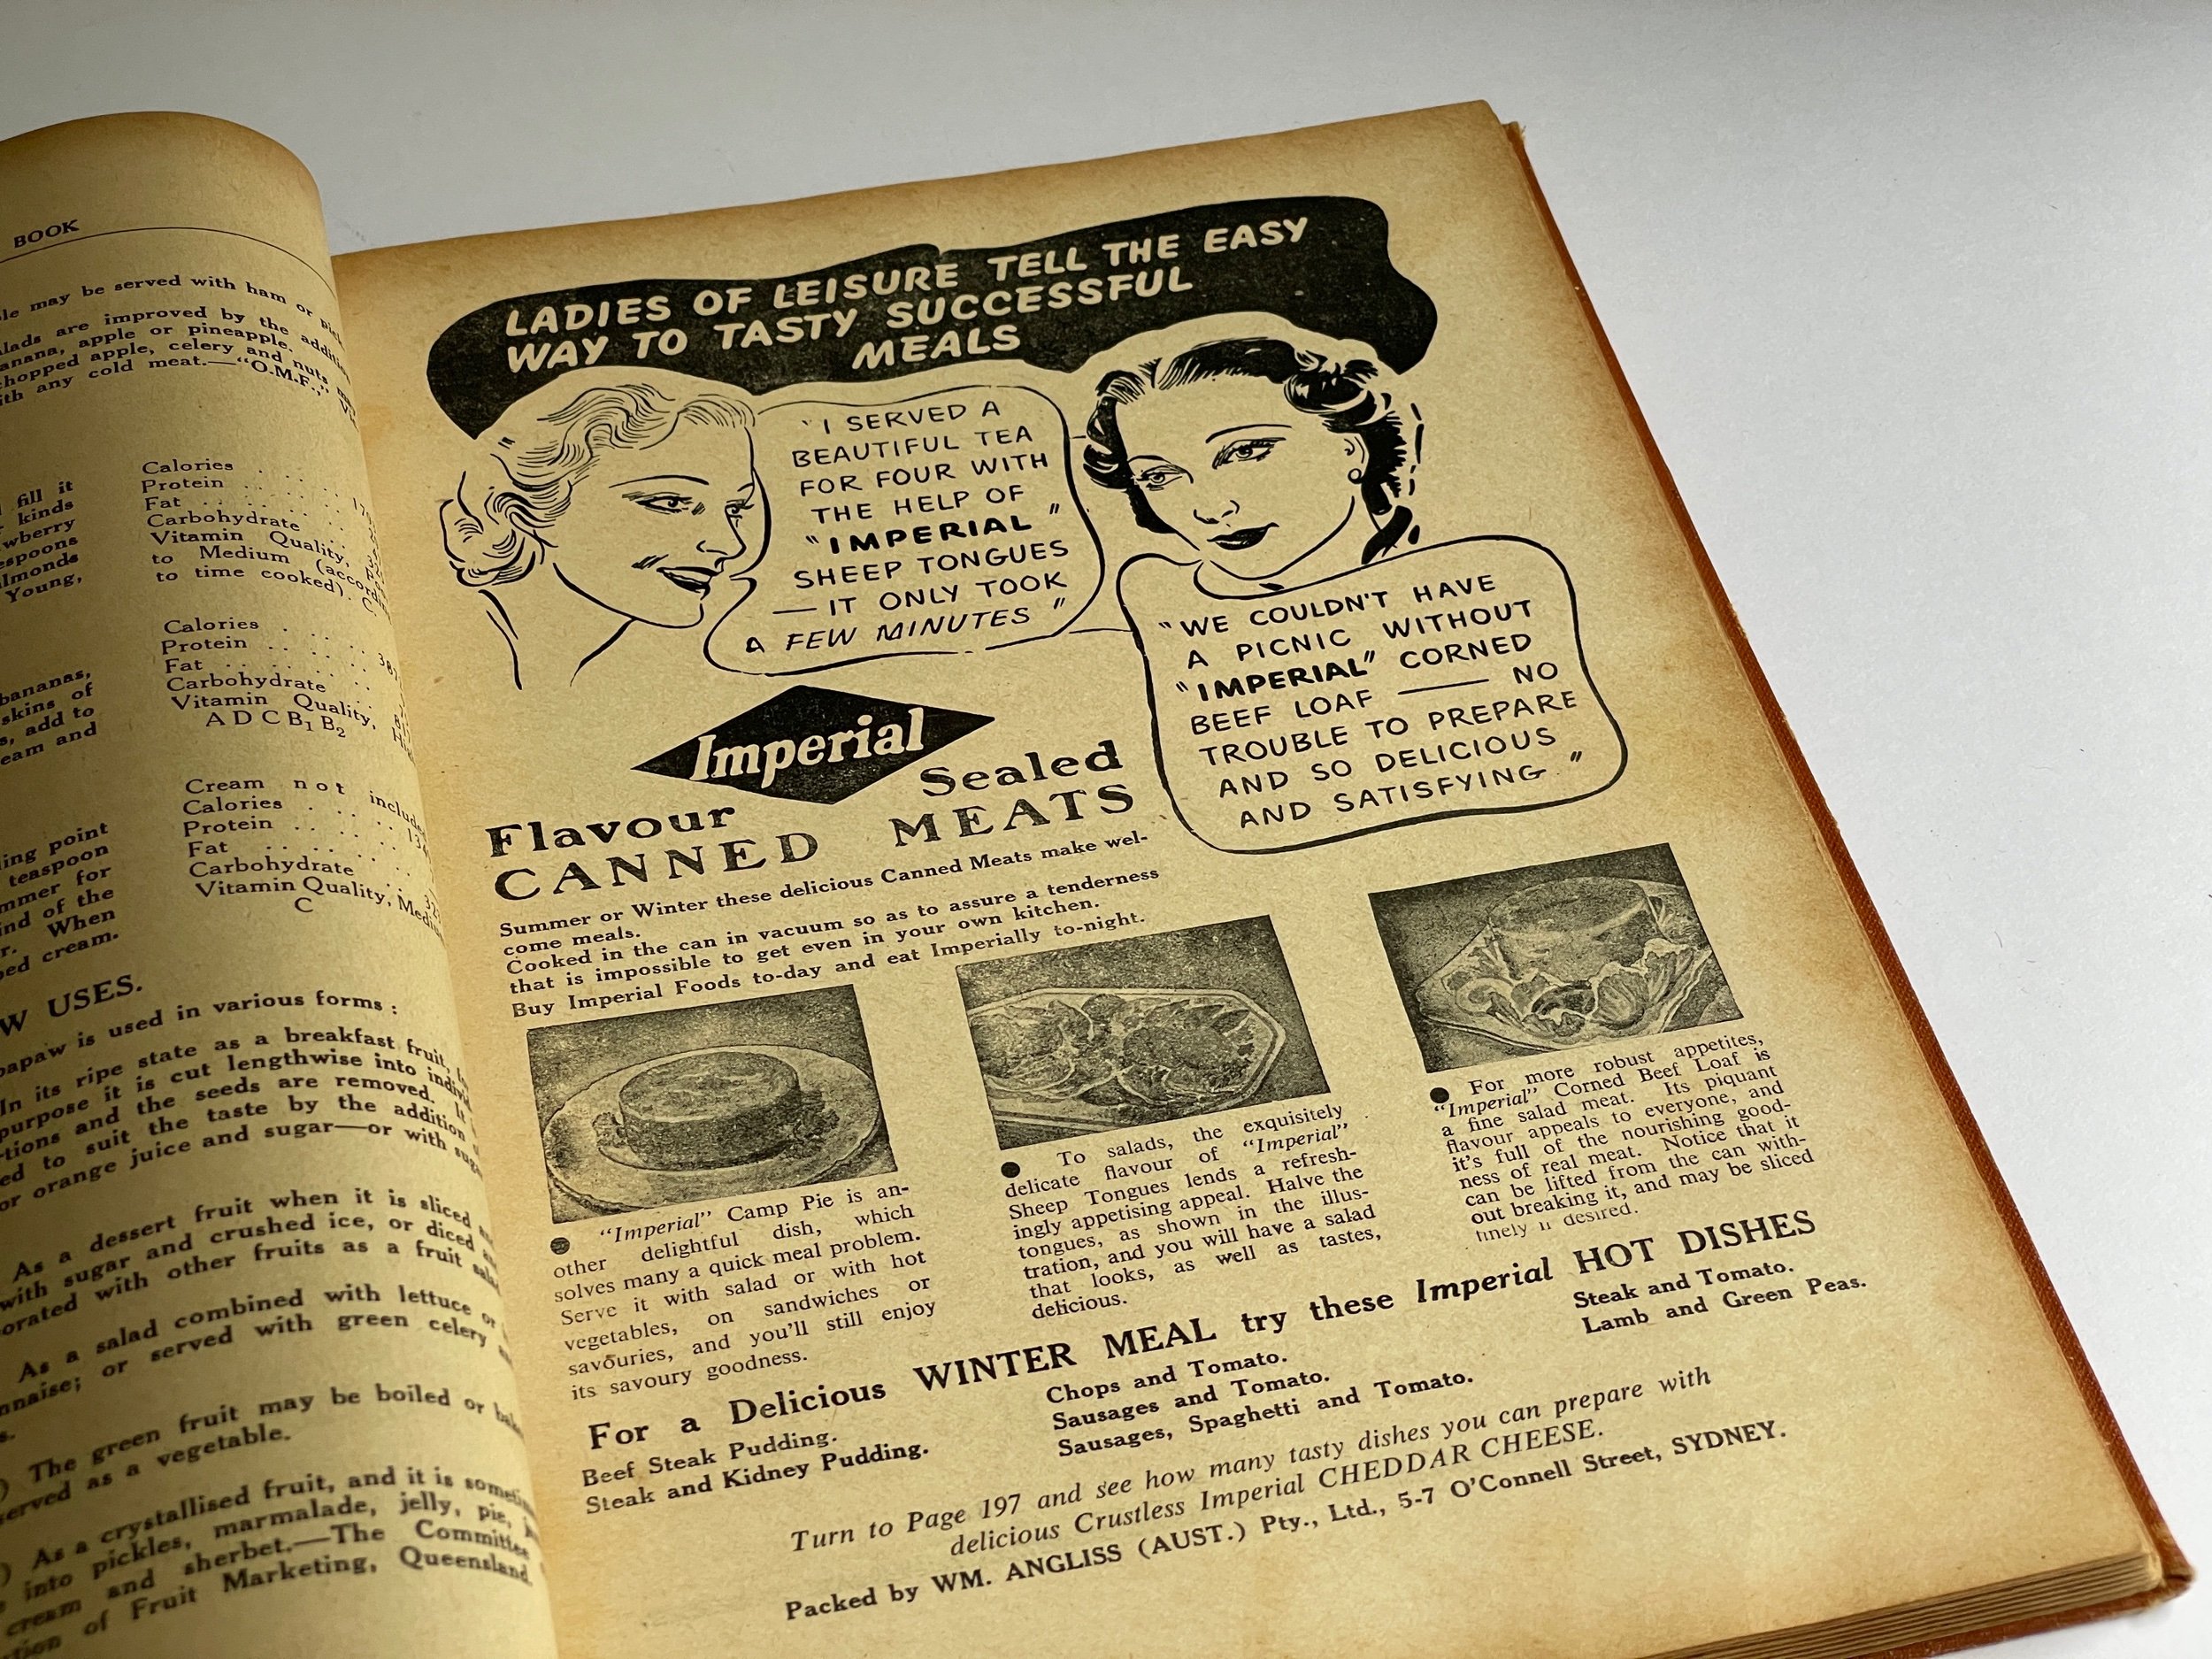 BOOK
may be served with ham or
are improved by the
apple or pineapple.
apple, celery and nuts
any cold meat.—"O.M.F.,"
fill it
kinds
spoons
Young,
Calories
Protein
Fat
Carbohydrate
Vitamin Quality,
to Medium
to time cooked). C
bananas,
skins of
add to
and
Calories
Protein
Fat
Carbohydrate
Vitamin Quality,
A D C B1 B2
point
teaspoon
for
of the
When
cream.
Cream not
Calories
Protein
Fat
Carbohydrate
Vitamin Quality,
C
USES.
is used in various forms:
In its ripe state as a breakfast fruit,
purpose it is cut lengthwise into
and the seeds are removed. It
to suit the taste by the addition
or orange juice and sugar—or with
As a dessert fruit when it is sliced
with sugar and crushed ice, or diced
with other fruits as a fruit
As a salad combined with lettuce or
or served with green celery
The green fruit may be boiled or
served as a vegetable.
As a crystallised fruit, and it is
into pickles, marmalade, jelly, pie,
cream and sherbet.—The Committee
of Fruit Marketing, Queensland.
LADIES OF LEISURE TELL THE EASY
WAY TO TASTY SUCCESSFUL
MEALS
"I SERVED A
BEAUTIFUL TEA
FOR FOUR WITH
THE HELP OF
"IMPERIAL"
SHEEP TONGUES
— IT ONLY TOOK
A FEW MINUTES"
"WE COULDN'T HAVE
A PICNIC WITHOUT
"IMPERIAL" CORNED
BEEF LOAF — NO
TROUBLE TO PREPARE
AND SO DELICIOUS
AND SATISFYING."
Imperial
Flavour Sealed
CANNED MEATS
Summer or Winter these delicious Canned Meats make wel-
come meals.
Cooked in the can in vacuum so as to assure a tenderness
that is impossible to get even in your own kitchen.
Buy Imperial Foods to-day and eat Imperially to-night.
● "Imperial" Camp Pie is an-
other delightful dish, which
solves many a quick meal problem.
Serve it with salad or with hot
vegetables, on sandwiches or
savouries, and you'll still enjoy
its savoury goodness.
● To salads, the exquisitely
delicate flavour of "Imperial"
Sheep Tongues lends a refresh-
ingly appetising appeal. Halve the
tongues, as shown in the illus-
tration, and you will have a salad
that looks, as well as tastes,
delicious.
● For more robust appetites,
"Imperial" Corned Beef Loaf is
a fine salad meat. Its piquant
flavour appeals to everyone, and
it's full of the nourishing good-
ness of real meat. Notice that it
can be lifted from the can with-
out breaking it, and may be sliced
finely if desired.
For a Delicious WINTER MEAL try these Imperial HOT DISHES
Beef Steak Pudding.
Steak and Kidney Pudding.
Chops and Tomato.
Sausages and Tomato.
Sausages, Spaghetti and Tomato.
Steak and Tomato.
Lamb and Green Peas.
Turn to Page 197 and see how many tasty dishes you can prepare with
delicious Crustless Imperial CHEDDAR CHEESE.
Packed by WM. ANGLISS (AUST.) Pty., Ltd., 5-7 O'Connell Street, SYDNEY.